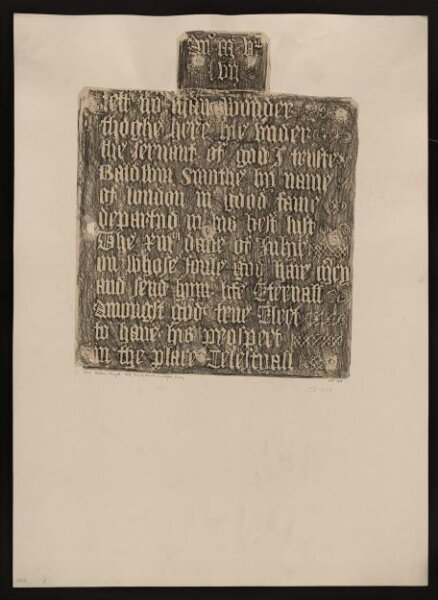 Ao m vc
lvii
Lett no man wonder
thothe here lye under
the servant of god I truste
Baldwin Smythe by name
of london in good fame
departed in his best lust
The daie of Julye
on whose soule god have mcy
and send hym the Eternall
Amongst gods true Elect
to have his prospect
in the place Celestyall